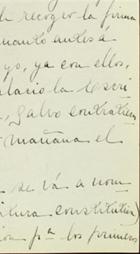 de recoger la firma
mando antes a
yo, ya con ellos,
alario la escri
, salvo contratiem
mañana el
se vá a nom
itura constitutiva)
ion pª los primeros